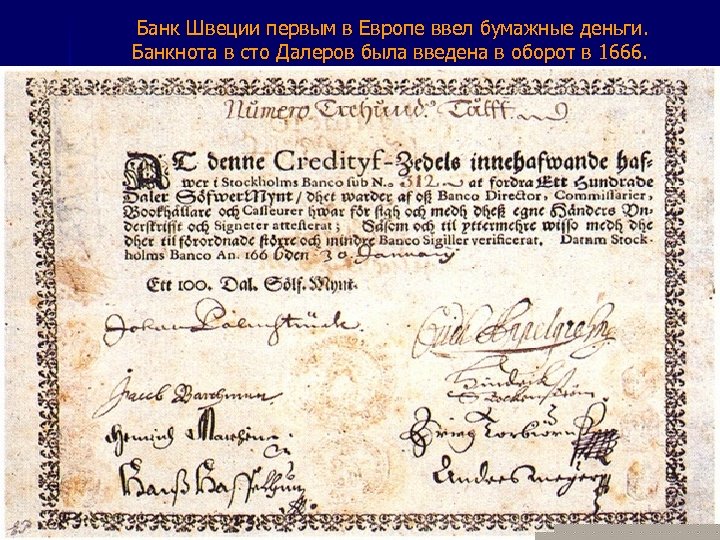 Банк Швеции первым в Европе ввел бумажные деньги.
Банкнота в сто Далеров была введена в оборот в 1666.
Numero Trehund. Tålff
AT denne Credityf-Zedels innehafwande haf-
wer i Stockholms Banco sub N.º 312 at fordra Ett Hundrade
Daler SölfwerMynt / dhet warder af oß Banco Director, Commissarier,
Bookhållare och Casseurer hwar för sigh och medh dheß egne Händers Vn-
derskrifft och Signeter attesterat; Såsom och til yttermehre wisso medh dhe
dher til förordnade större och mindre Banco Sigiller verificerat. Datum Stock-
holms Banco An. 1666 den 30 January
Ett 100. Dal. Sölf. Mynt.
Johan Palmstruck
Jacob
Hinrick
Heinrich
Hanß
Anders Meyer